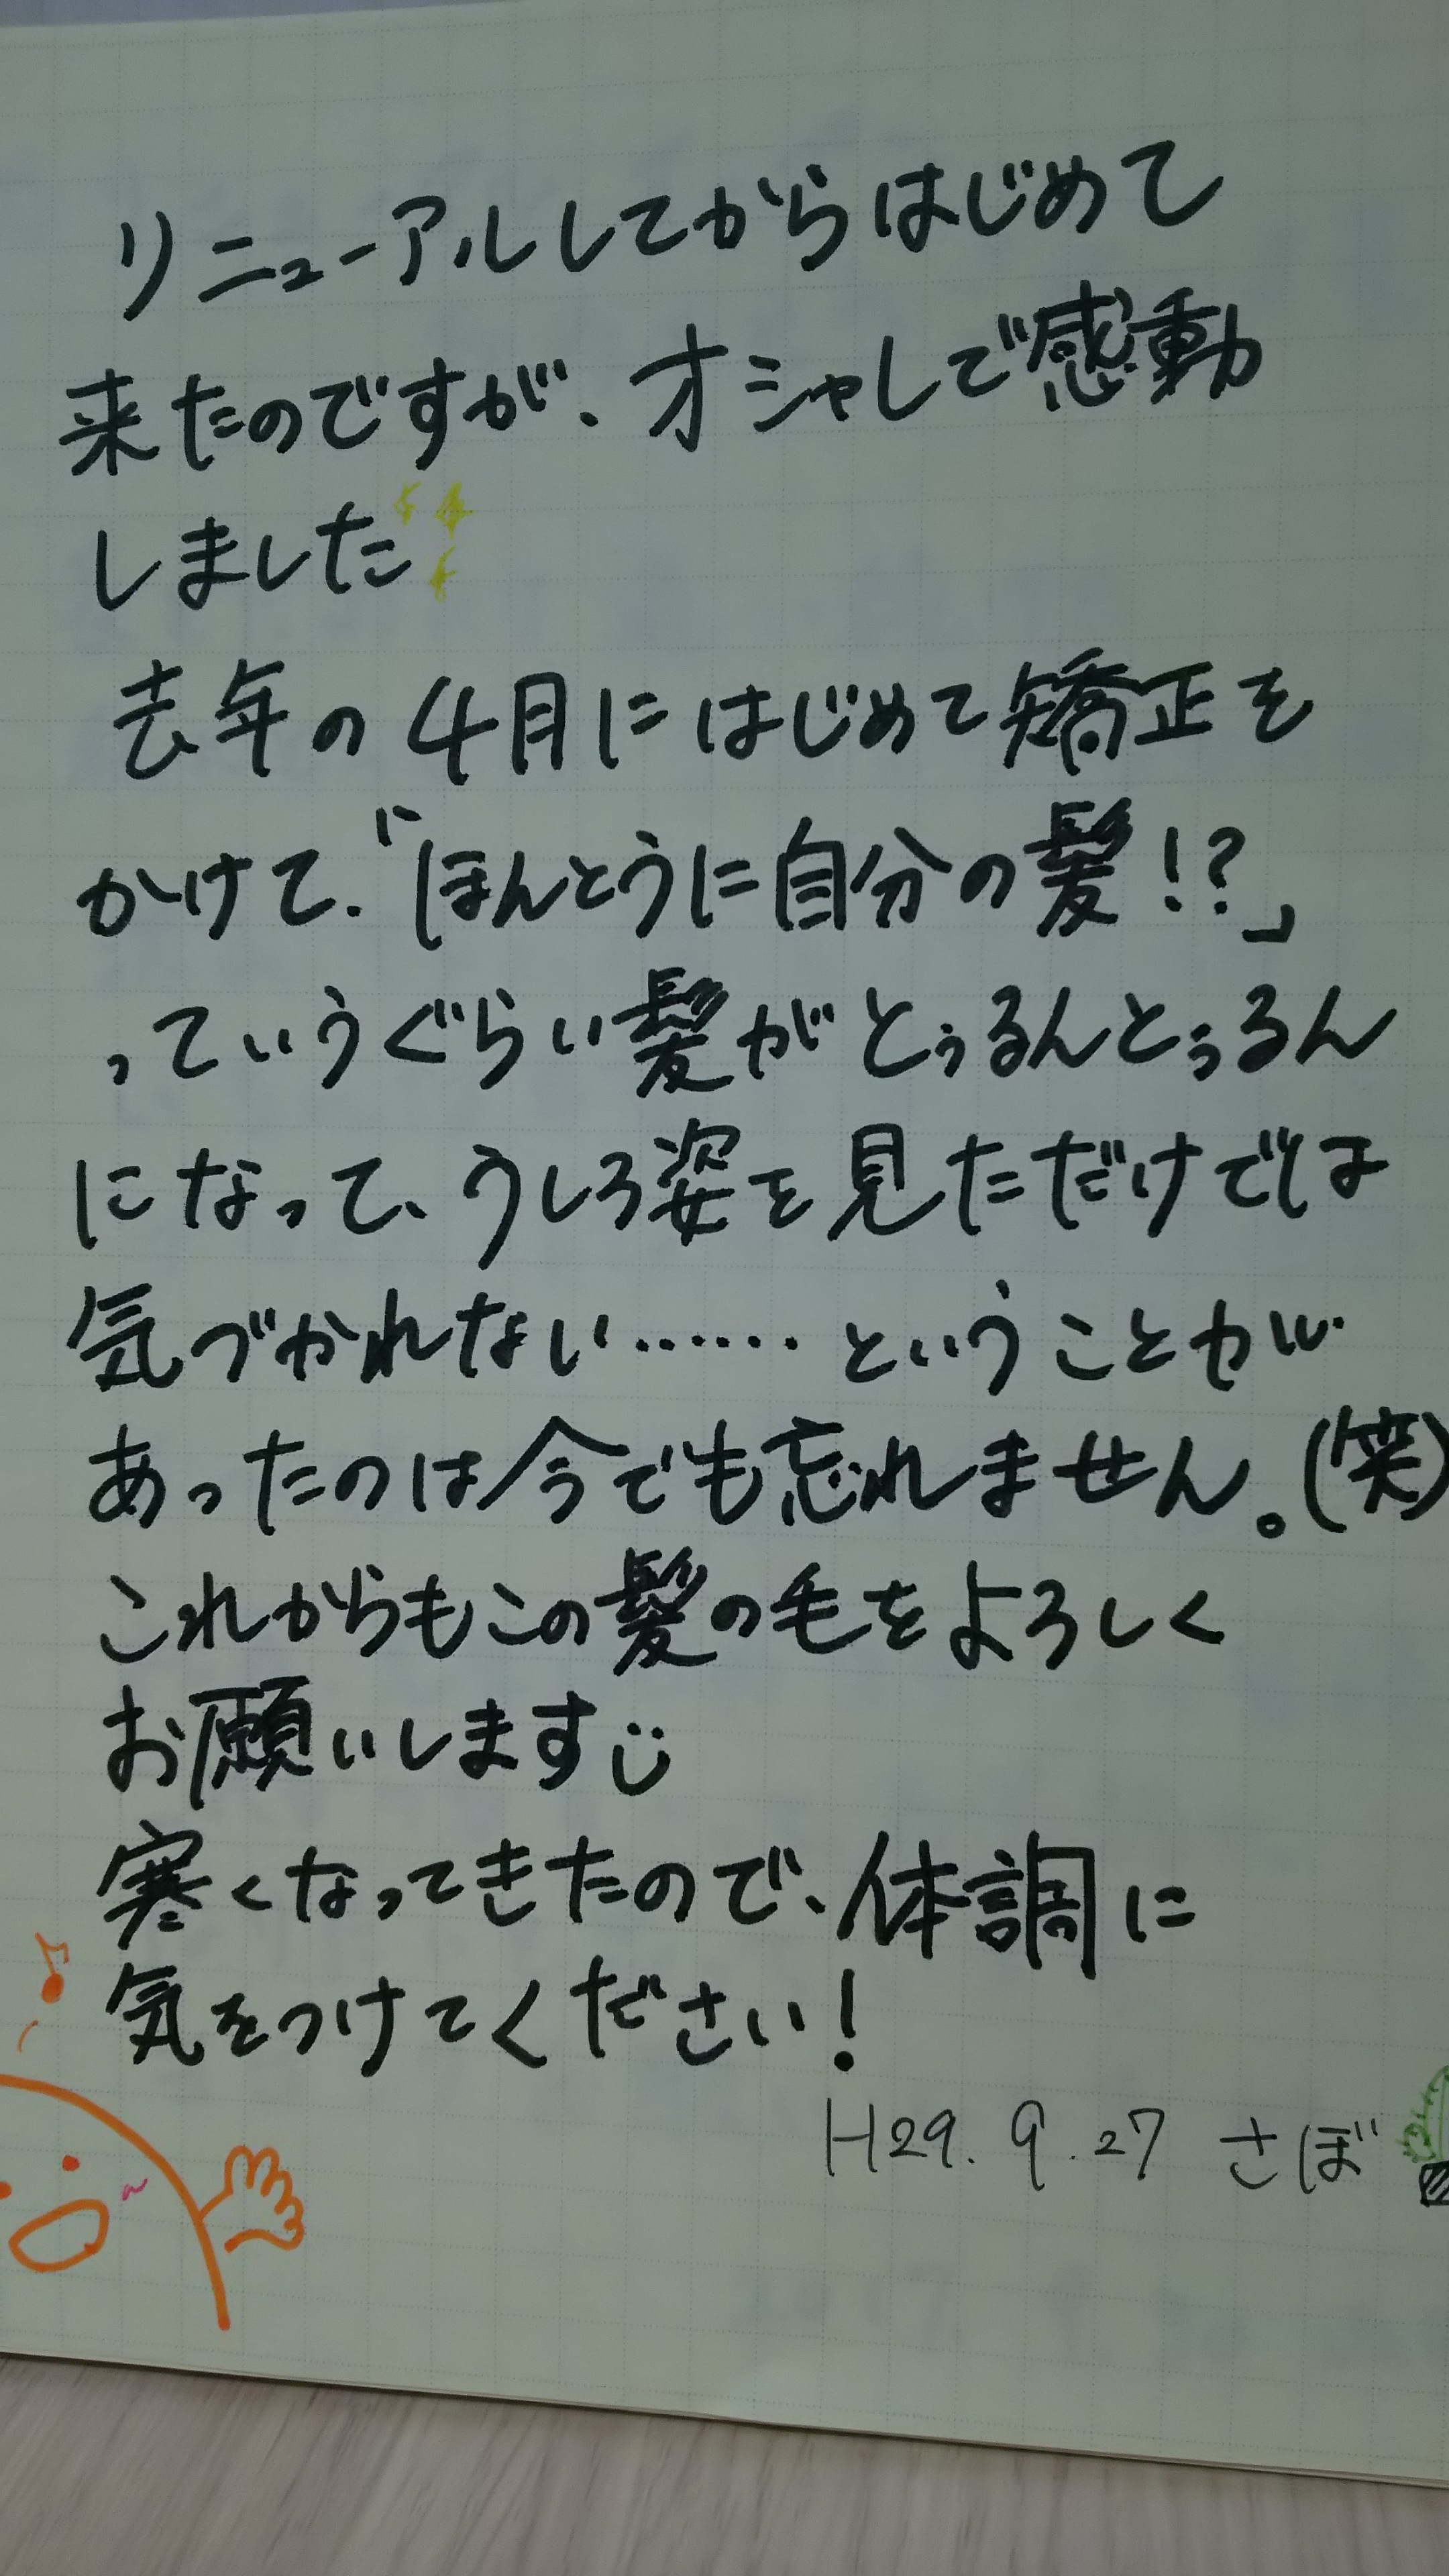 リニューアルしてからはじめて
来たのですが、オシャレで感動
しました
去年の4月にはじめて矯正を
かけて、「ほんとうに自分の髪!?」
っていうぐらい髪がとぅるんとぅるん
になって、うしろ姿を見ただけでは
気づかれない……ということが
あったのは今でも忘れません。(笑)
これからもこの髪の毛をよろしく
お願いします
寒くなってきたので、体調に
気をつけてください!
H29.9.27 さぼ